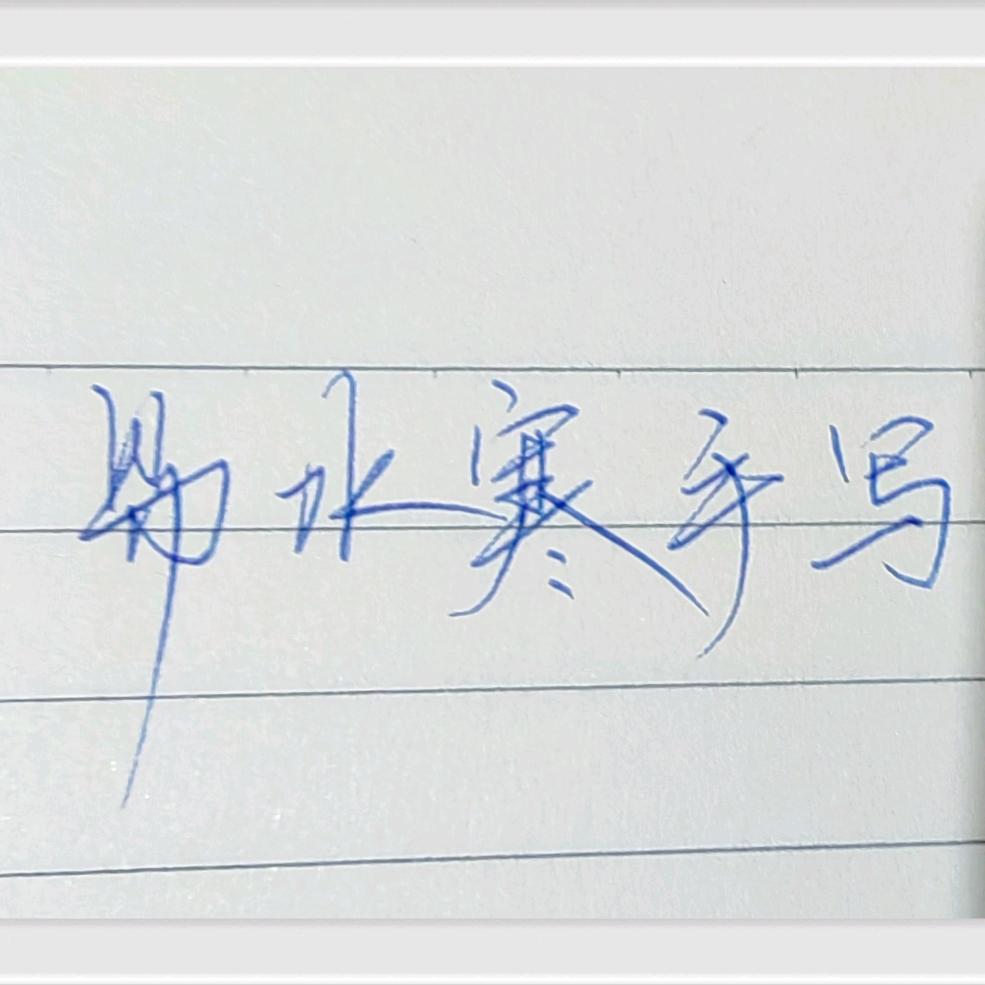 易水寒手写